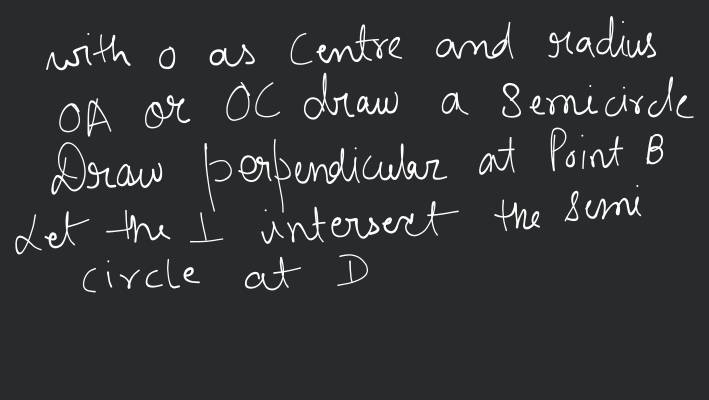 with O as Centre and radius
OA or OC draw a Semicircle
Draw perpendicular at Point B
Let the ⊥ intersect the Semi
circle at D